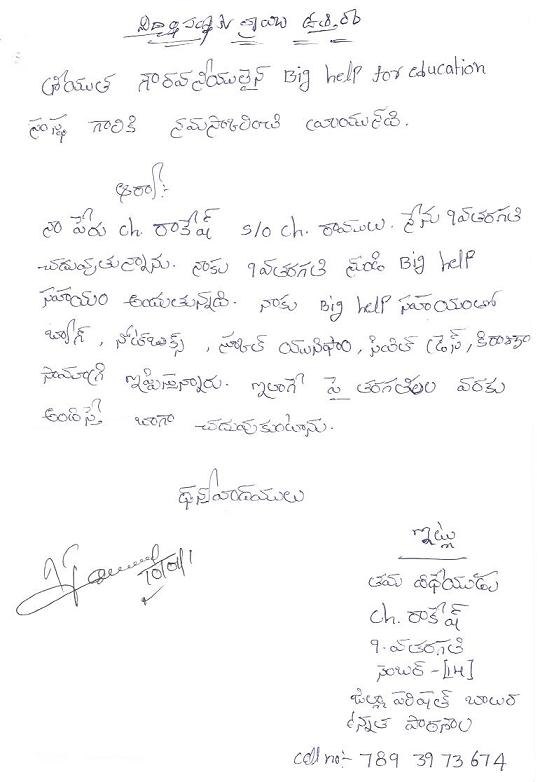 విద్యార్థి వ్రాయు ఉత్తరం
శ్రీయుత గౌరవనీయులైన Big help for education
సంస్థ గారికి నమస్కరించి వ్రాయునది.
ఆర్యా:-
నా పేరు ch. రాకేష్ s/o ch. రాములు. నేను 9వతరగతి
చదువుతున్నాను. నాకు 9వతరగతి నుండి Big help
సహాయం అందుతున్నది. నాకు Big help సహాయంతో
బ్యాగ్, నోట్‌బుక్స్, స్కూల్ యునిఫాం, సివిల్ డ్రెస్, కిరాణా
సామాగ్రి ఇస్తున్నారు. ఇలాగే పై తరగతుల వరకు
అందిస్తే బాగా చదువుకుంటాను.
ధన్యవాదములు
ఇట్లు
తమ విధేయుడు
ch. రాకేష్
9.వతరగతి
నెంబర్ - [14]
జిల్లా పరిషత్ బాలుర
ఉన్నత పాఠశాల
cell no:- 789 39 73 674